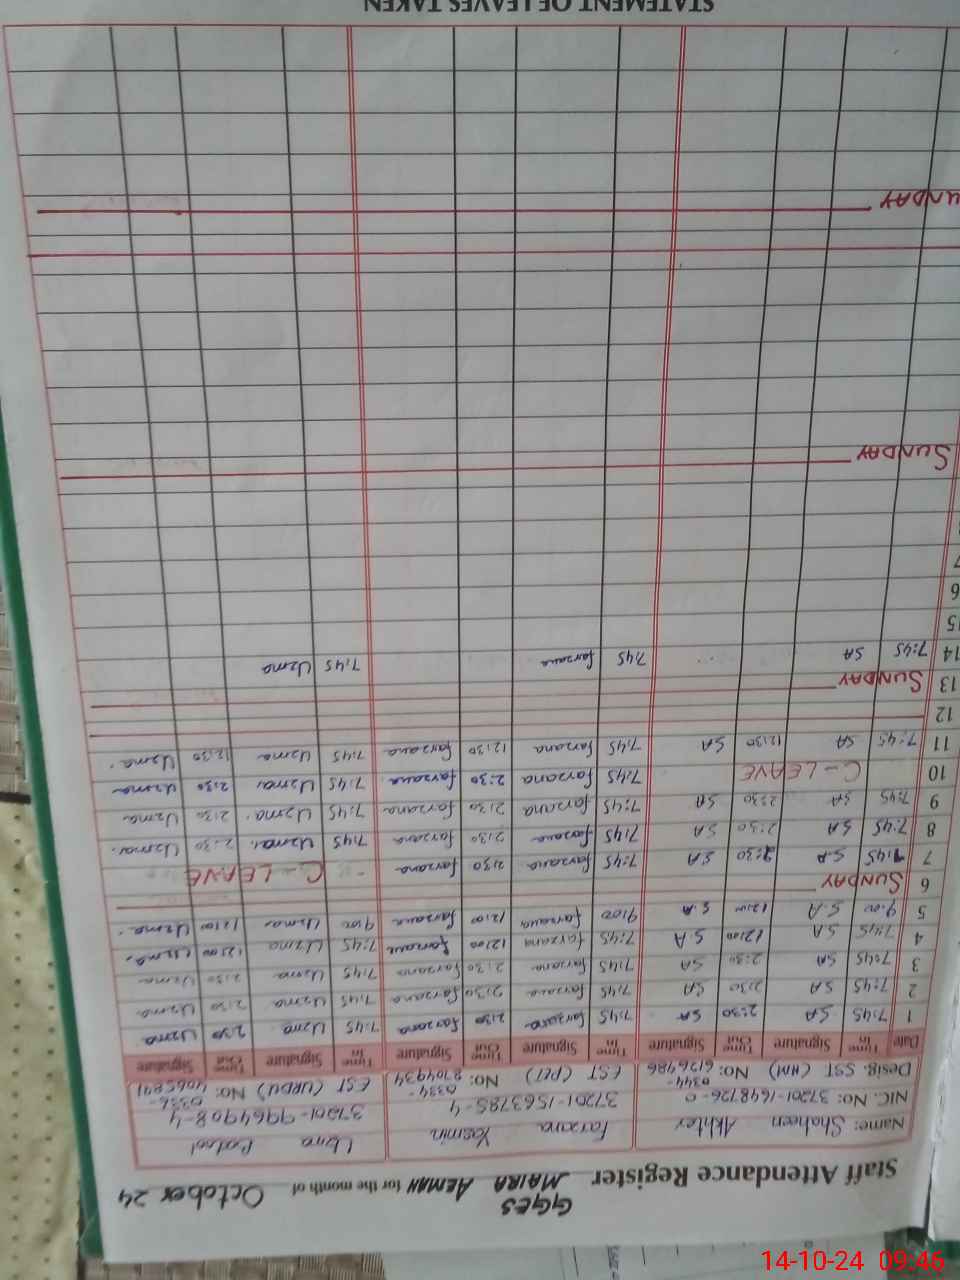 Staff Attendance Register GGES MAIRA AEMAH for the month of October 24
Name: Shaheen Akhter Farzana Yasmin Uzma Batool
NIC. No: 37201-1648726-0 37201-1563785-4 37201-9964908-4
Desig. SST (HM) No: 0344-6126486 EST (PET) No: 0334-8704934 EST (URDU) No: 0336-4065841
Date Time In Signature Time Out Signature Time In Signature Time Out Signature Time In Signature Time Out Signature
1 7:45 SA 2:30 SA 7:45 farzana 2:30 farzana 7:45 Uzma 2:30 Uzma
2 7:45 SA 2:30 SA 7:45 farzana 2:30 farzana 7:45 Uzma 2:30 Uzma
3 7:45 SA 2:30 SA 7:45 farzana 2:30 farzana 7:45 Uzma 2:30 Uzma
4 7:45 SA 12:00 S.A 7:45 farzana 12:00 farzana 7:45 Uzma 12:00 Uzma.
5 9:00 S.A 12:00 S.A 9:00 farzana 12:00 farzana 9:00 Uzma 12:00 Uzma.
6 SUNDAY
7 7:45 S.A 2:30 SA 7:45 farzana 2:30 farzana C-LEAVE
8 7:45 SA 2:30 SA 7:45 farzana 2:30 farzana 7:45 Uzma. 2:30 Uzma.
9 7:45 SA 2:30 SA 7:45 farzana 2:30 farzana 7:45 Uzma. 2:30 Uzma
10 C-LEAVE 7:45 farzana 2:30 farzana 7:45 Uzma. 2:30 Uzma
11 7:45 SA 12:30 SA 7:45 farzana 12:30 farzana 7:45 Uzma 12:30 Uzma.
12
13 SUNDAY
14 7:45 SA 7:45 farzana 7:45 Uzma
15
6
7
SUNDAY
SUNDAY
STATEMENT OF LEAVES TAKEN
14-10-24 09:46